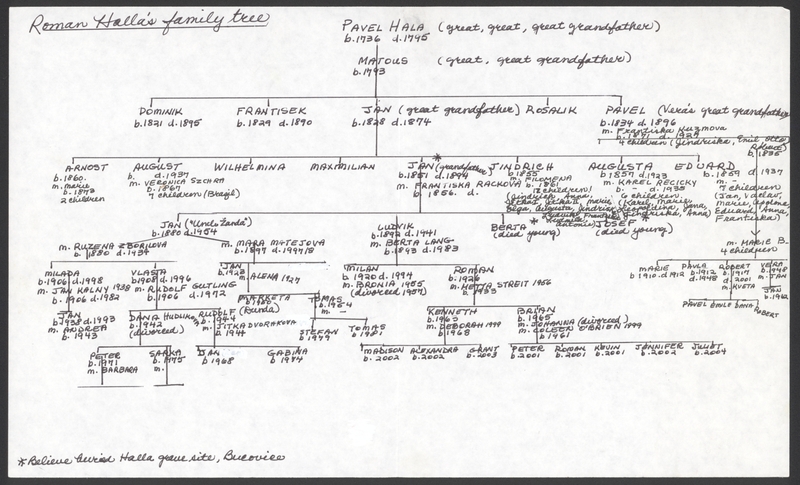 Roman Halla's family tree
PAVEL HALA (great, great, great grandfather)
b.1736 d.1795
MATOUS (great, great grandfather)
b.1793
DOMINIK
b.1821 d.1895
FRANTISEK
b.1829 d.1890
JAN (great grandfather)
b.1828 d.1874
ROSALIK
PAVEL (Vera's great grandfather)
b.1834 d.1896
m. Frantiska Kuzmova
4 children (Jindriska, Emil, Otto,
b.1835
ARNOST
b.1860.
m. Marie
b.1873
2 children
AUGUST
b. d.1937
m. VERONICA SZCHRA
b.1867
7 children (Brazil)
WILHELMINA
MAXMILIAN
JAN * (grandfather)
b.1851 d.1894
m. FRANTISKA RACKOVA
b.1856. d.
JINDRICH
b.1855
m. FILOMENA
b.1861
12 children
AUGUSTA
b.1857 d.1923
m. KAREL RECICKY
b. - d.1935
6 children
(Karel, Marie,
Jindriska, Anna)
EDUARD
b.1859 d.1937
m. -
7 children
(Jan, Vaclav,
Marie, Stepana,
Eduard, Anna,
Frantiska)
JAN ("Uncle Janda")
b.1880 d.1954
m. RUZENA ZBORILOVA
b.1880 d.1934
m. MARA MATEJOVA
b.1897
LUDVIK
b.1892 d.1941
m. BERTA LANG
b.1893 d.1983
BERTA
(died young)
JOSEF *
(died young)
m. MARIE B.
4 children
MILADA
b.1906 d.1998
m. JAN KALNY 1938
b.1906 d.1982
VLASTA
b.1908 d.1996
m. RUDOLF GUTLING
b.1906 d.1972
JAN
b.1923
m. ALENA 1927
MILAN
b.1920 d.1994
m. BRONIA 1955
(divorced 1957)
ROMAN
b.1926
m. HETTA STREIT 1956
b.1933
MARIE
b.1910 d.1912
PAVLA
b.1912
d.1948
ROBERT
b.1917
d.2001
m. KVETA
VERA
b.1948
m. JAN
JAN
PAVEL EMILE DANA ROBERT
JAN
b.1938 d.1993
m. ANDREA
b.1943
DANA HUDLIK
b.1942
(divorced)
RUDOLF (Runda)
b.1944
m. JITKA DVORAKOVA
b.1944
MARKETA
b.1950
TOMAS
b.1954
m. -
STEFAN
b.1979
TOMAS
b.1981
KENNETH
b.1963
m. DEBORAH 1999
b.1968
BRIAN
b.1965
m. JOHANNA (divorced)
m. COLEEN O'BRIEN 1999
b.1961
PETER
b.1971
m. BARBARA
SARKA
b.1975
m.
JAN
b.1968
GABINA
b.1974
MADISON
b.2002
ALEXANDRA
b.2002
GRANT
b.2003
PETER
b.2001
ROMAN
b.2001
KEVIN
b.2001
JENNIFER
b.2002
JULIET
b.2004
*Believe buried Halla grave site, Bucovice